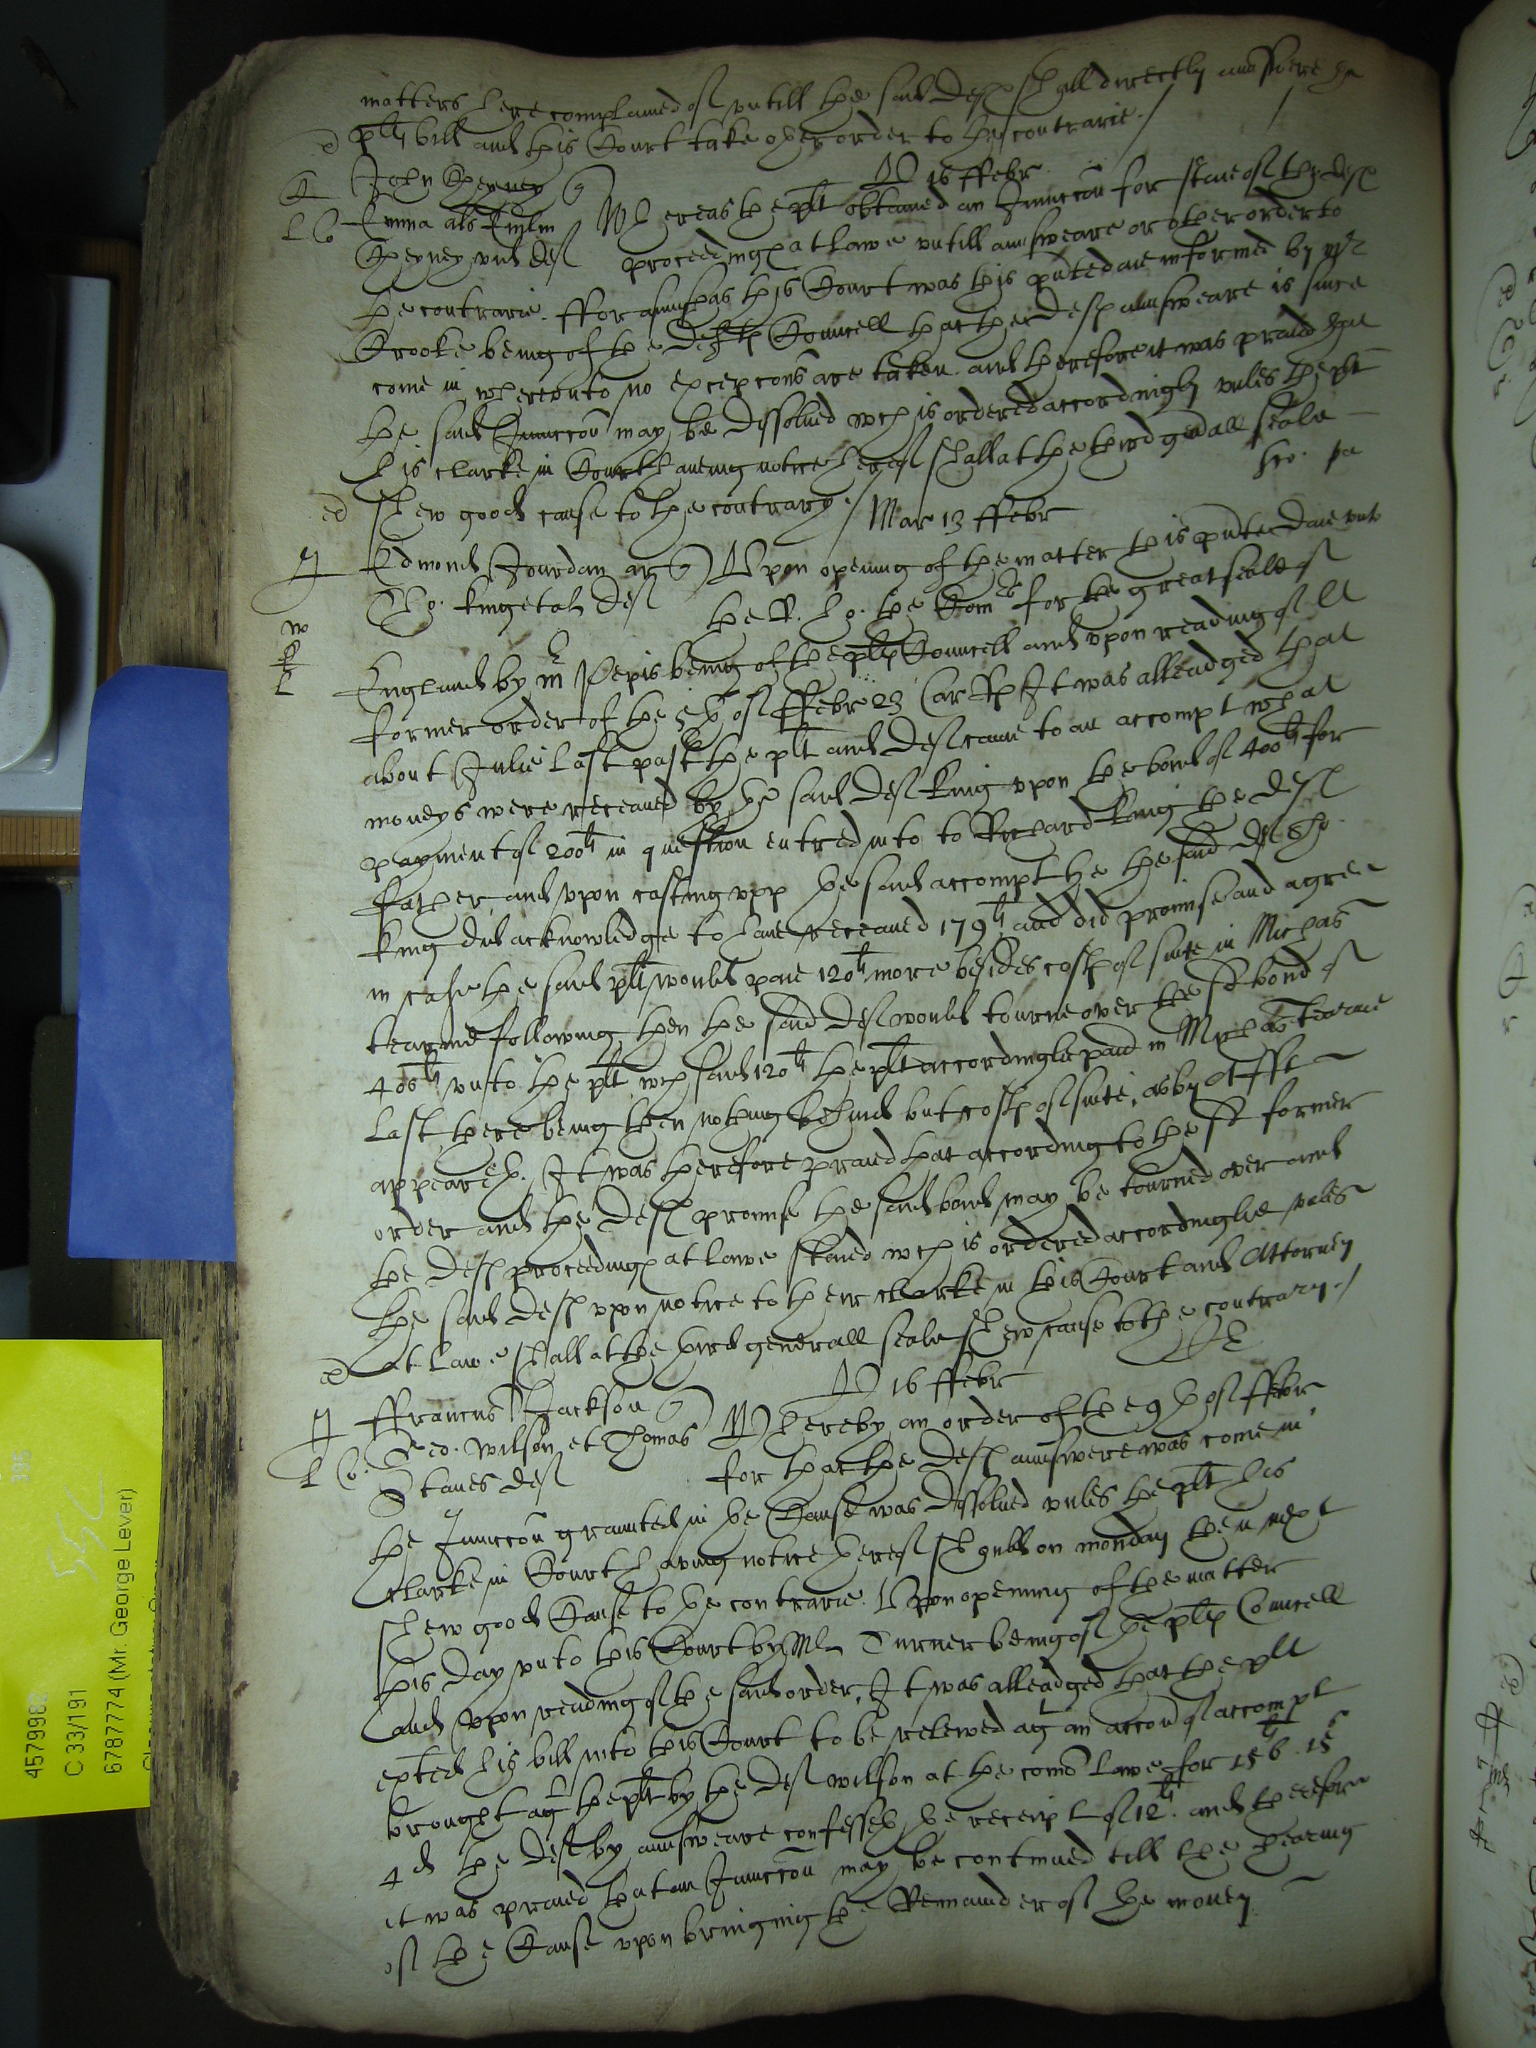 matters here complained of untill the said Deft shall directly aunswere the
plts bill and this Court take other order to the contrarie
John Cheyney
16 ffebr
Emma als
Whereas the plt obtained an Iniunccon for staie of the defts
Cheyney vid def
proceedings at lawe untill aunsweare or other order to
the contrarie. fforasmuch as this Court was this pnte daie informed by mr
Crooke being of the Defts Councell that the Defts aunsweare is since
come in whereunto no excepcons are taken and therefore it was praied that
the said Iniunccon may be dissolved wch is ordered accordingly unles the plt
his clarke in Court haveing notice hereof shall at the third gnall seale
shew good cause to the contrary
Mar 13 ffebr
Edmond Jourdan ar
Upon opening of the matter this pnte daie unto
King et al def
the R. ho. the Comrs for the great seale of
England by mr Pepis being of the plts Councell and upon reading of a
former order of the 5th of ffebr 23 Car Rs It was alleadged that
about Julie last past the plt and Def came to an accompt what
moneys were receaved by the said Def King upon the bond of 400li for
payment of 200li in question entred into to Richard King the Defts
father and upon casting upp the said accompt he the said Def
King did acknowledge to have receaved 179li and did promise and agree
in case the said plt would paie 120li more besides costs of suite in Michas
tearme following then the said Def would tourne over the sd bond of
400li unto the plt wch said 120li the plt accordinglie paid in Michas Tearme
last there being then nothing behind but costs of suite, as by Afft
appeareth. It was therefore praied that according to the sd former
order and the Defts promise the said bond may be tourned over and
the Defts proceedings at lawe staied wch is ordered accordinglie unles
the said Defts upon notice to their clarke in this Court and Attorney
at Lawe shall at the third generall seale shew cause to the contrary
16 ffebr
ffrancus Jackson
Whereby an order of the 9th of ffebr
Geo. Wilson et Thomas
for that the Defts aunswere was come in
Staues def
the Iniunccon graunted in the Cause was dissolved unles the plt his
clarke in Court having notice thereof should on monday then next
shew good Cause to the contrarie. Upon opening of the matter
this day unto this Court by Mr Turner being of the plts Councell
and upon reading of the said order, It was alleadged that the plt
exhted his bill into this Court to be releived agt an accon of accompt
brought agt the plt by the Def Wilson at the comon Lawe for 156 15s
4d the Def by aunsweare confesseth the receipt of 12li and therefore
it was praied that an Iniunccon may be continued till the hearing
of the Cause upon bringing the Remainder of the money
4579982
C 33/191
6787774 (Mr. George Lever)